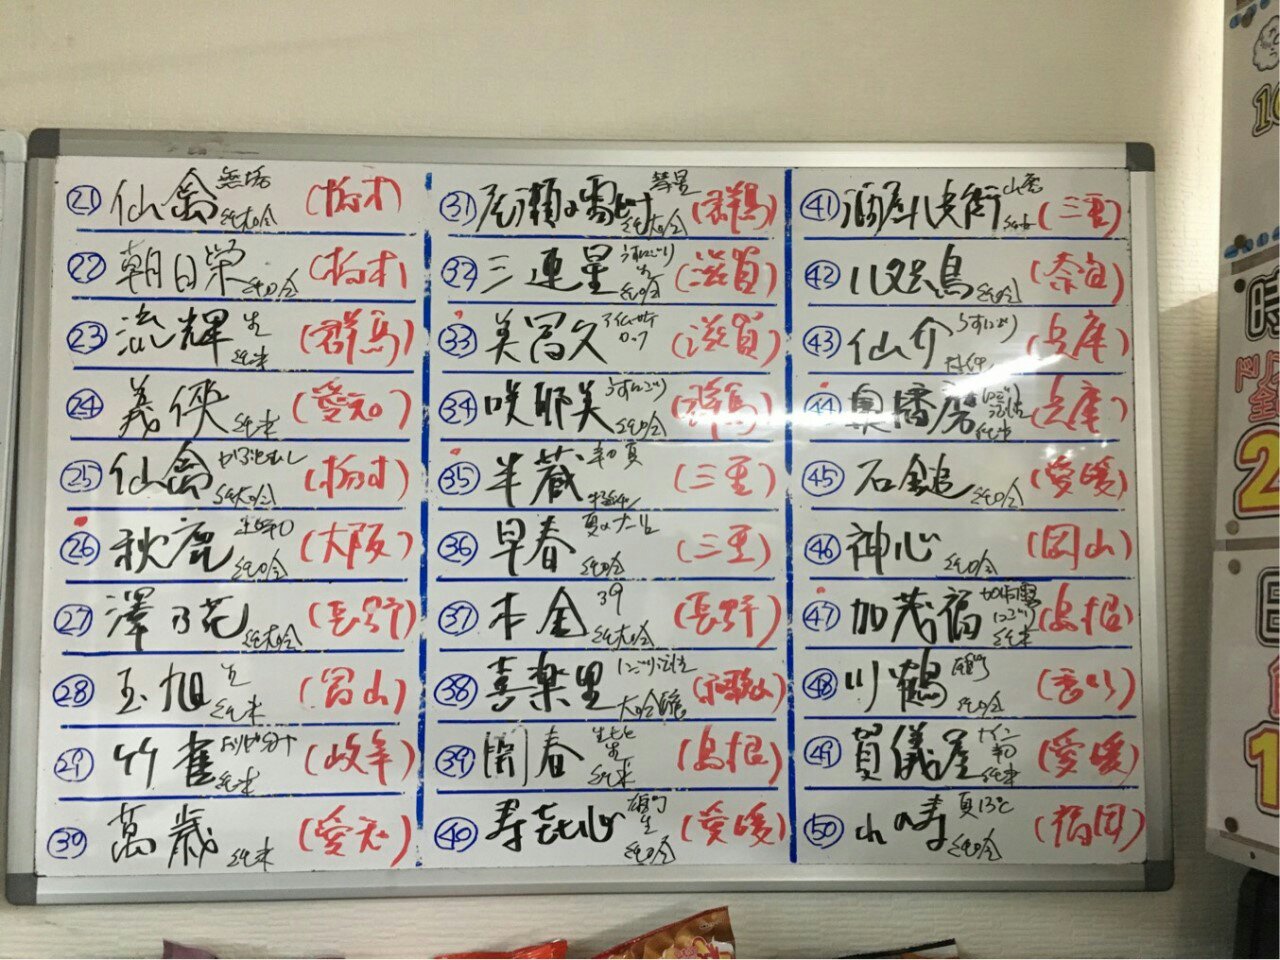 ㉑ 仙禽 無垢 純大吟 (栃木)
㉒ 朝日栄 純吟 (栃木)
㉓ 流輝 生 純米 (群馬)
㉔ 義侠 純米 (愛知)
㉕ 仙禽 かぶとむし 純大吟 (栃木)
㉖ 秋鹿 純吟 (大阪)
㉗ 澤の花 純大吟 (長野)
㉘ 玉旭 生 純米 (富山)
㉙ 竹雀 純米 (岐阜)
㉚ 萬歳 純米 (愛知)
㉛ 尾瀬の雪どけ 彗星 純大吟 (群馬)
㉜ 三連星 うすにごり 生 純吟 (滋賀)
㉝ 美冨久 (滋賀)
㉞ 咲耶美 うすにごり 純吟 (群馬)
㉟ 半蔵 特純 (三重)
㊱ 早春 純吟 (三重)
㊲ 本金 39 純大吟 (長野)
㊳ 喜楽里 にごり活性 大吟醸 (和歌山)
㊴ 開春 純米 (島根)
㊵ 寿喜心 雄町 生 純吟 (愛媛)
㊶ 酒屋八兵衛 山廃 純米 (三重)
㊷ 八咫烏 純吟 (奈良)
㊸ 仙介 うすにごり 特純 (兵庫)
㊹ 奥播磨 純米 (兵庫)
㊺ 石鎚 純吟 (愛媛)
㊻ 神心 純吟 (岡山)
㊼ 加茂福 にごり 純米 (島根)
㊽ 川鶴 雄町 純吟 (香川)
㊾ 賀儀屋 純米 (愛媛)
㊿ 山の寿 夏13℃ 純吟 (福岡)